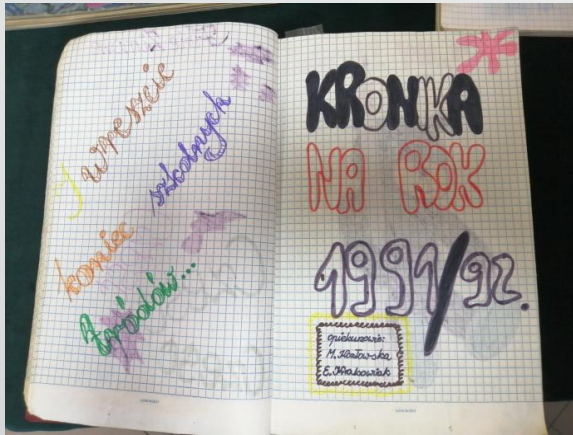 I wreszcie
koniec szkolnych
trudów...
KRONIKA
NA ROK
1991/92.
opiekunowie:
M. Kozłowska
E. Krakowiak